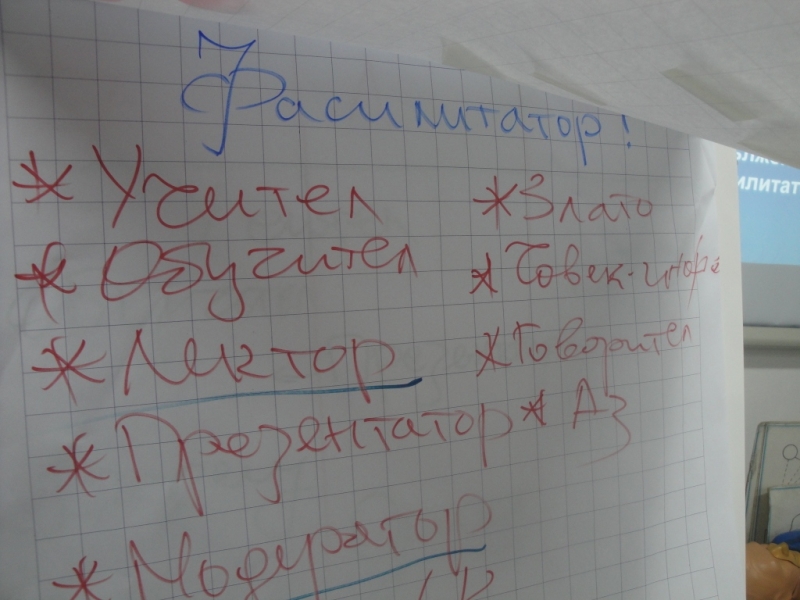 Фасилитатор!
* Учител
* Обучител
* Лектор
* Презентатор
* Модератор
* Злато
* Човек-
* Говорител
* Аз
илитат